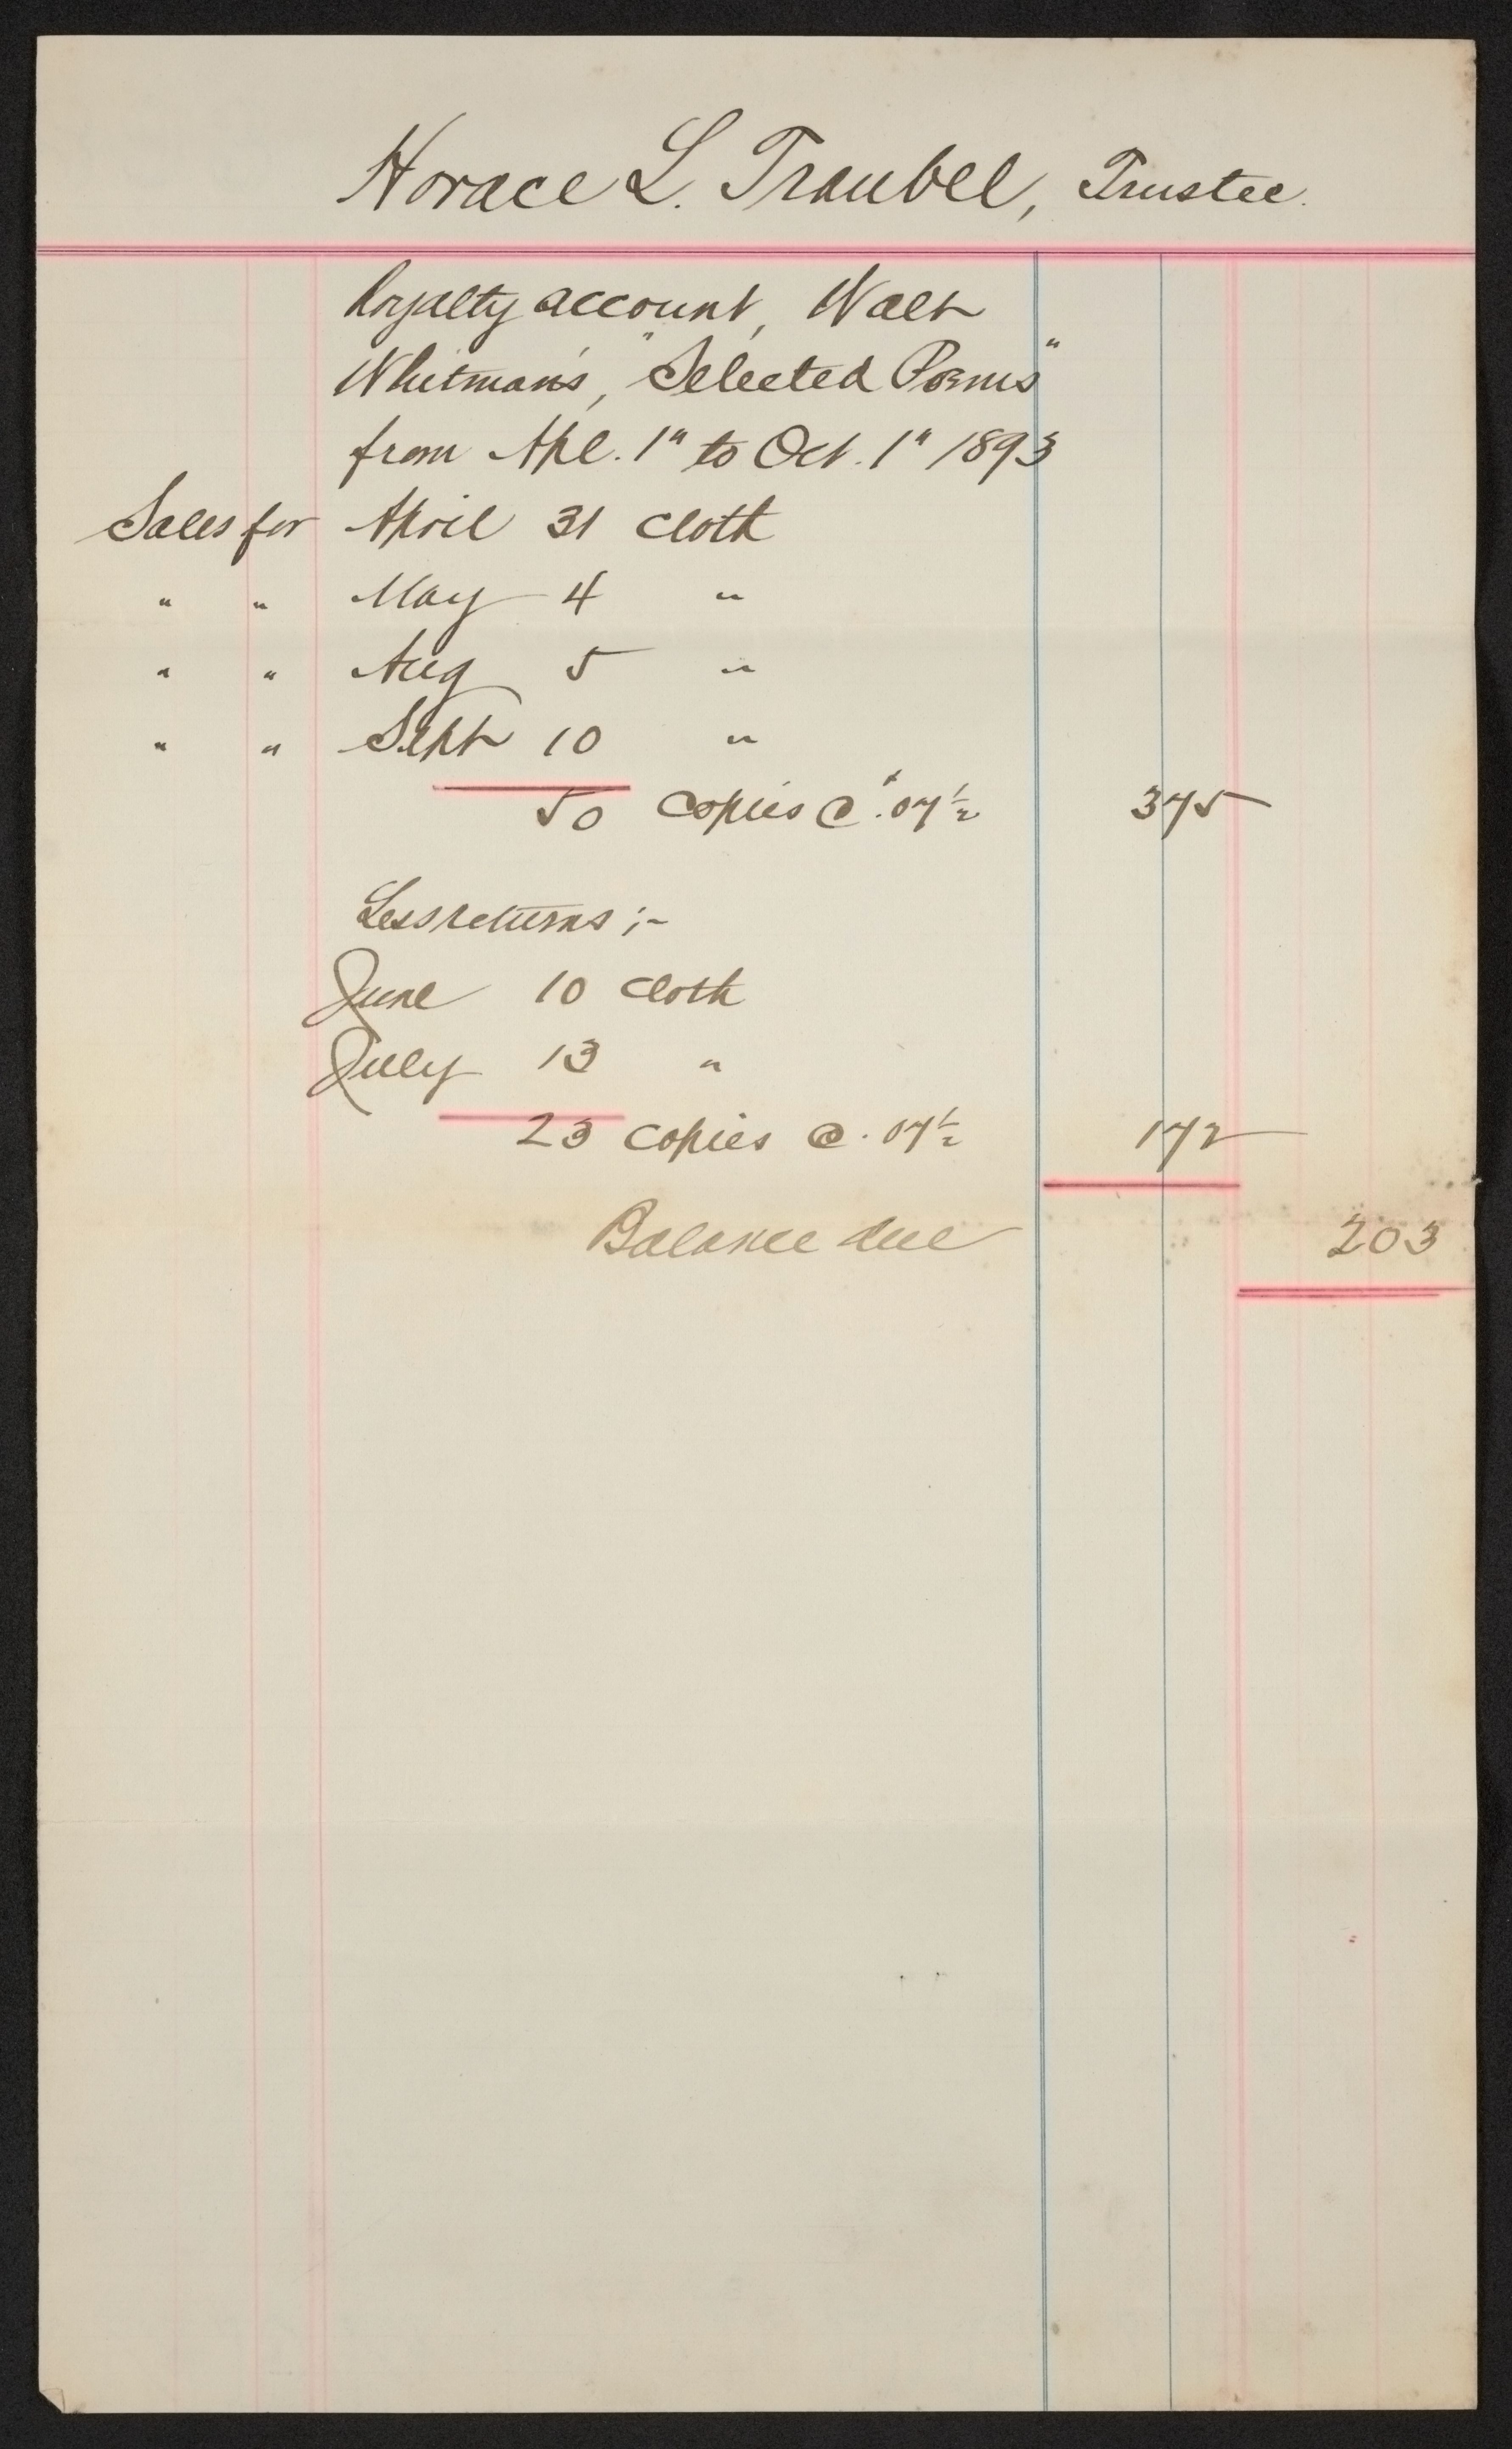 Horace L. Traubel, Trustee.
Royalty account, Walt
Whitman's, "Selected Poems"
from Apl. 1" to Oct. 1" 1893
Sales for April 31 cloth
" " May 4 "
" " Aug 5 "
" " Sept 10 "
50 copies @ .07½ 375
Less returns ;-
June 10 cloth
July 13 "
23 copies @ .07½ 172
Balance due 203